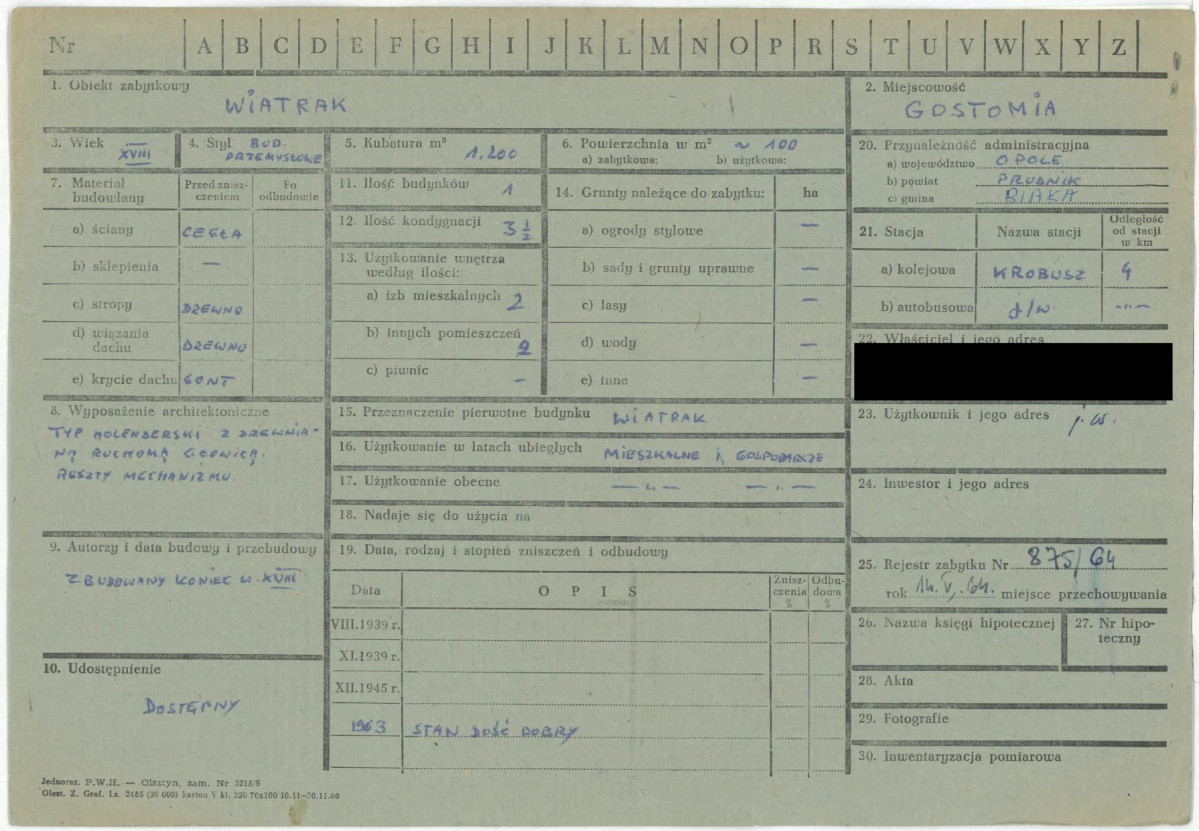 Nr A B C D E F G H I J K L M N O P R S T U V W X Y Z
1. Obiekt zabytkowy
WIATRAK
2. Miejscowość
GOSTOMIA
3. Wiek
XVIII
4. Styl BUD.
PRZEMYSŁOWE
5. Kubatura m³
1.200
6. Powierzchnia w m² ~ 100
a) zabytkowa: b) użytkowa:
20. Przynależność administracyjna
a) województwo OPOLE
b) powiat PRUDNIK
c) gmina BIAŁA
7. Materiał budowlany
Przed znisz-
czeniem
Po
odbudowie
a) ściany CEGŁA
b) sklepienia —
c) stropy DRZEWNO
d) wiązania
dachu DRZEWNO
e) krycie dachu GONT
11. Ilość budynków 1
12. Ilość kondygnacji 3 1/2
13. Użytkowanie wnętrza
według ilości:
a) izb mieszkalnych 2
b) innych pomieszczeń 2
c) piwnic —
14. Grunty należące do zabytku: ha
a) ogrody stylowe —
b) sady i grunty uprawne —
c) lasy —
d) wody —
e) inne —
21. Stacja
Nazwa stacji
Odległość
od stacji
w km
a) kolejowa KROBUSZ 4
b) autobusowa j/w. —„—
22. Właściciel i jego adres
8. Wyposażenie architektoniczne
TYP HOLENDERSKI Z DREWNIA-
NĄ RUCHOMĄ GŁOWICĄ.
RESZTY MECHANIZMU.
15. Przeznaczenie pierwotne budynku WIATRAK
16. Użytkowanie w latach ubiegłych MIESZKALNE I GOSPODARCZE
17. Użytkowanie obecne —„— —„—
18. Nadaje się do użycia na
23. Użytkownik i jego adres j.w.
24. Inwestor i jego adres
9. Autorzy i data budowy i przebudowy
ZBUDOWANY KONIEC W. XVIII
19. Data, rodzaj i stopień zniszczeń i odbudowy
Data
O P I S
Znisz-
czenia
%
Odbu-
dowa
%
VIII.1939 r.
XI.1939 r.
XII.1945 r.
1963 STAN DOŚĆ DOBRY
25. Rejestr zabytku Nr 875/64
rok 14.V.64. miejsce przechowywania
26. Nazwa księgi hipotecznej
27. Nr hipo-
teczny
28. Akta
29. Fotografie
30. Inwentaryzacja pomiarowa
10. Udostępnienie
DOSTĘPNY
Jednoraz. P.W.H. — Olsztyn, zam. Nr 2215/S
Olszt. Z. Graf. Lz. 2485 (20 000) karton V kl. 220 70x100 10.11—30.11.60